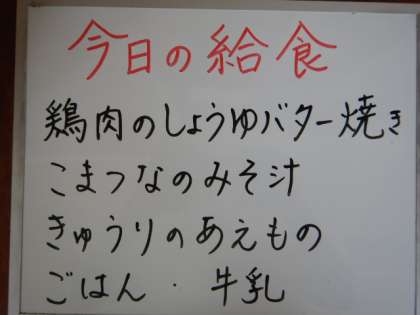 今日の給食
鶏肉のしょうゆバター焼き
こまつなのみそ汁
きゅうりのあえもの
ごはん ・ 牛乳